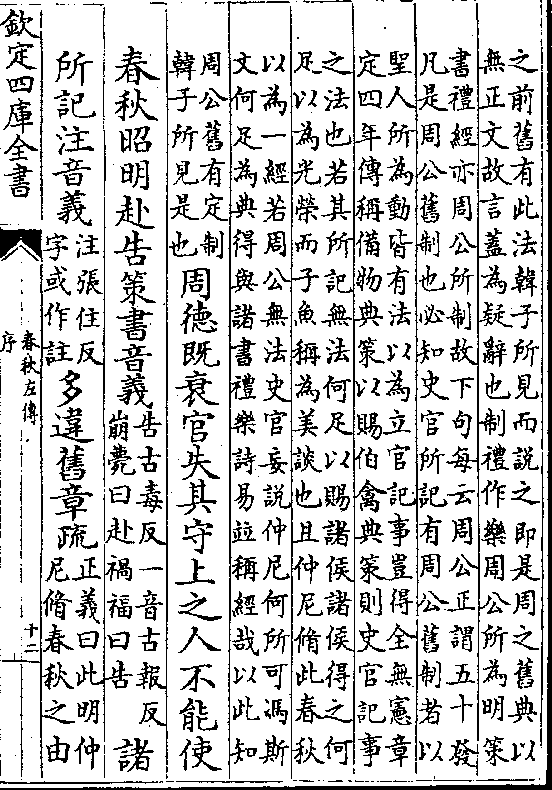 之前舊有此法韓子所見而說之即是周之舊典以
無正文故言蓋為疑辭也制禮作樂周公所為明策
書禮經亦周公所制故下句每云周公正謂五十發
凡是周公舊制也必知史官所記有周公舊制者以
聖人所為動皆有法以為立官記事豈得全無憲章
定四年傳稱備物典策以賜伯禽典策則史官記事
之法也若其所記無法何足以賜諸侯諸侯得之何
足以為光榮而子魚稱為美談也且仲尼脩此春秋
以為一經若周公無法史官妄說仲尼何所可馮斯
文何足為典得與諸書禮樂詩易並稱經哉以此知
周公舊有定制
韓子所見是也
周德既衰官失其守上之人不能使
春秋昭明赴告策書音義
告古毒反一音古報反
崩薨曰赴禍福曰告
諸
所記注音義
注張住反
字或作註
多違舊章疏
正義曰此明仲
尼脩春秋之由
欽定四庫全書
春秋左傳
序
十二